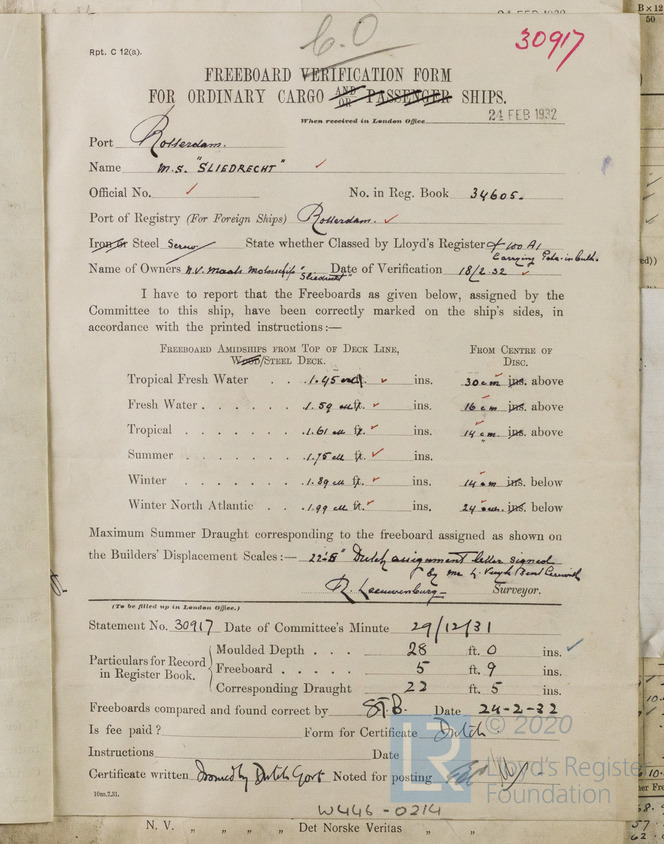 Rpt. C 12(a).
C.O
30917
FREEBOARD VERIFICATION FORM
FOR ORDINARY CARGO AND OR PASSENGER SHIPS.
When received in London Office 24 FEB 1932
Port Rotterdam.
Name M.S. "SLIEDRECHT"
Official No. No. in Reg. Book 34605.
Port of Registry (For Foreign Ships) Rotterdam.
Iron or Steel Screw State whether Classed by Lloyd's Register + 100 A1
Carrying Petr. in bulk.
Name of Owners N.V. Maats Motorschip "Sliedrecht" Date of Verification 18/2.32
I have to report that the Freeboards as given below, assigned by the
Committee to this ship, have been correctly marked on the ship's sides, in
accordance with the printed instructions:—
FREEBOARD AMIDSHIPS FROM TOP OF DECK LINE, FROM CENTRE OF
WOOD/STEEL DECK. DISC.
Tropical Fresh Water . . . 1.45 ft. ins. 30 cm ins. above
Fresh Water . . . . . . 1.59 m ft. ins. 16 cm ins. above
Tropical . . . . . . 1.61 m ft. ins. 14 cm ins. above
Summer . . . . . . 1.75 m ft. ins.
Winter . . . . . . 1.89 m ft. ins. 14 cm ins. below
Winter North Atlantic . . 1.99 m ft. ins. 24 cm. ins. below
Maximum Summer Draught corresponding to the freeboard assigned as shown on
the Builders' Displacement Scales:— 22'-5" Dutch assignment letter signed
by me
R. Leeuwenburg Surveyor.
(To be filled up in London Office.)
Statement No. 30917 Date of Committee's Minute 29/12/31
Particulars for Record in Register Book.
Moulded Depth . . . 28 ft. 0 ins.
Freeboard . . . . . 5 ft. 9 ins.
Corresponding Draught 22 ft. 5 ins.
Freeboards compared and found correct by S.T.B. Date 24-2-32
Is fee paid? Form for Certificate Dutch.
Instructions Date
Certificate written Issued by Dutch Govt Noted for posting
10m,7,31.
© 2020
LR
Lloyd's Register
Foundation
W446-0214
N. V. " " " " Det Norske Veritas " "